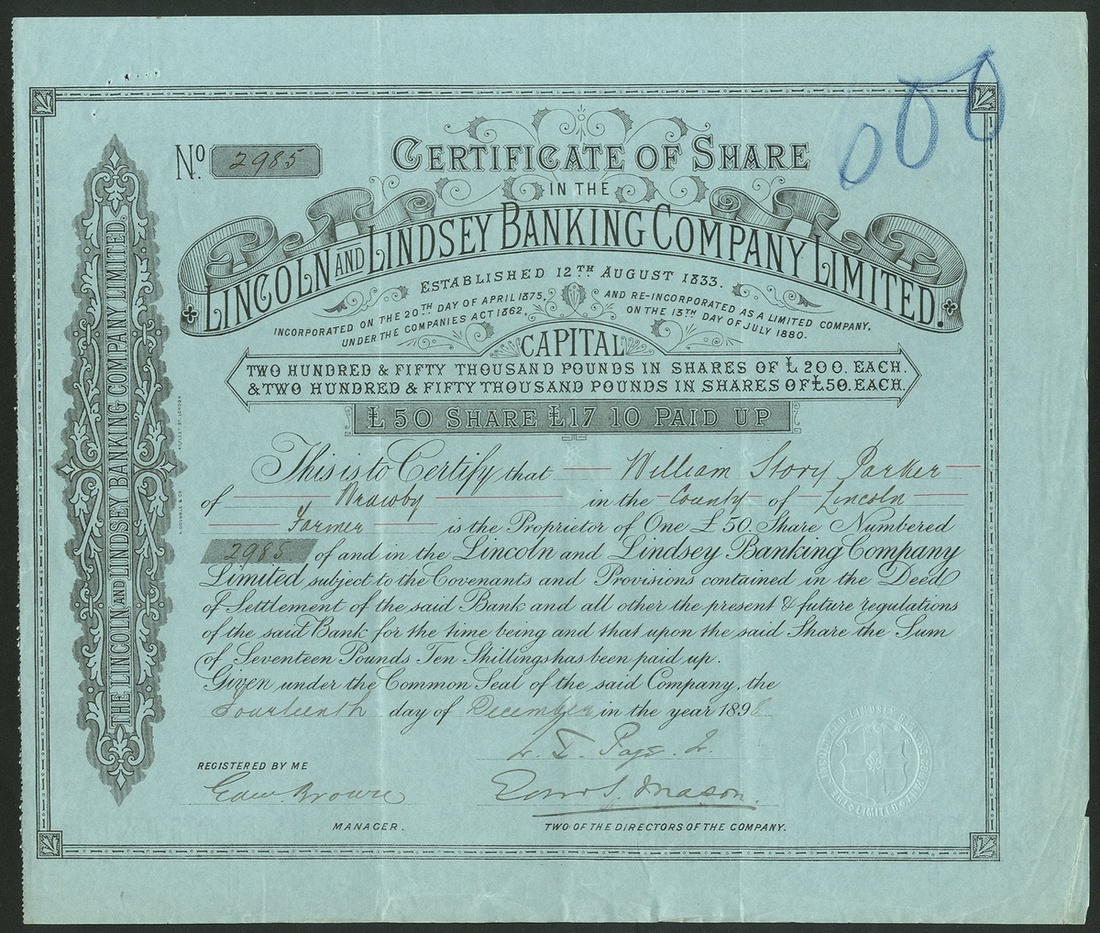 000
No. 2985
CERTIFICATE OF SHARE
IN THE
LINCOLN AND LINDSEY BANKING COMPANY LIMITED.
ESTABLISHED 12TH AUGUST 1833.
INCORPORATED ON THE 20TH DAY OF APRIL 1875,
UNDER THE COMPANIES ACT 1862,
AND RE-INCORPORATED AS A LIMITED COMPANY,
ON THE 13TH DAY OF JULY 1880.
CAPITAL
TWO HUNDRED & FIFTY THOUSAND POUNDS IN SHARES OF £200. EACH.
& TWO HUNDRED & FIFTY THOUSAND POUNDS IN SHARES OF £50. EACH.
£50 SHARE £17 10 PAID UP
This is to Certify that William Story Parker
of Wrawby in the County of Lincoln
Farmer is the Proprietor of One £50. Share Numbered
2985 of and in the Lincoln and Lindsey Banking Company
Limited subject to the Covenants and Provisions contained in the Deed
of Settlement of the said Bank and all other the present & future regulations
of the said Bank for the time being and that upon the said Share the Sum
of Seventeen Pounds Ten Shillings has been paid up.
Given under the Common Seal of the said Company, the
Fourteenth day of December in the year 189
REGISTERED BY ME
Edw. Browne
Mason.
MANAGER.
TWO OF THE DIRECTORS OF THE COMPANY.
THE LINCOLN AND LINDSEY BANKING COMPANY LIMITED.